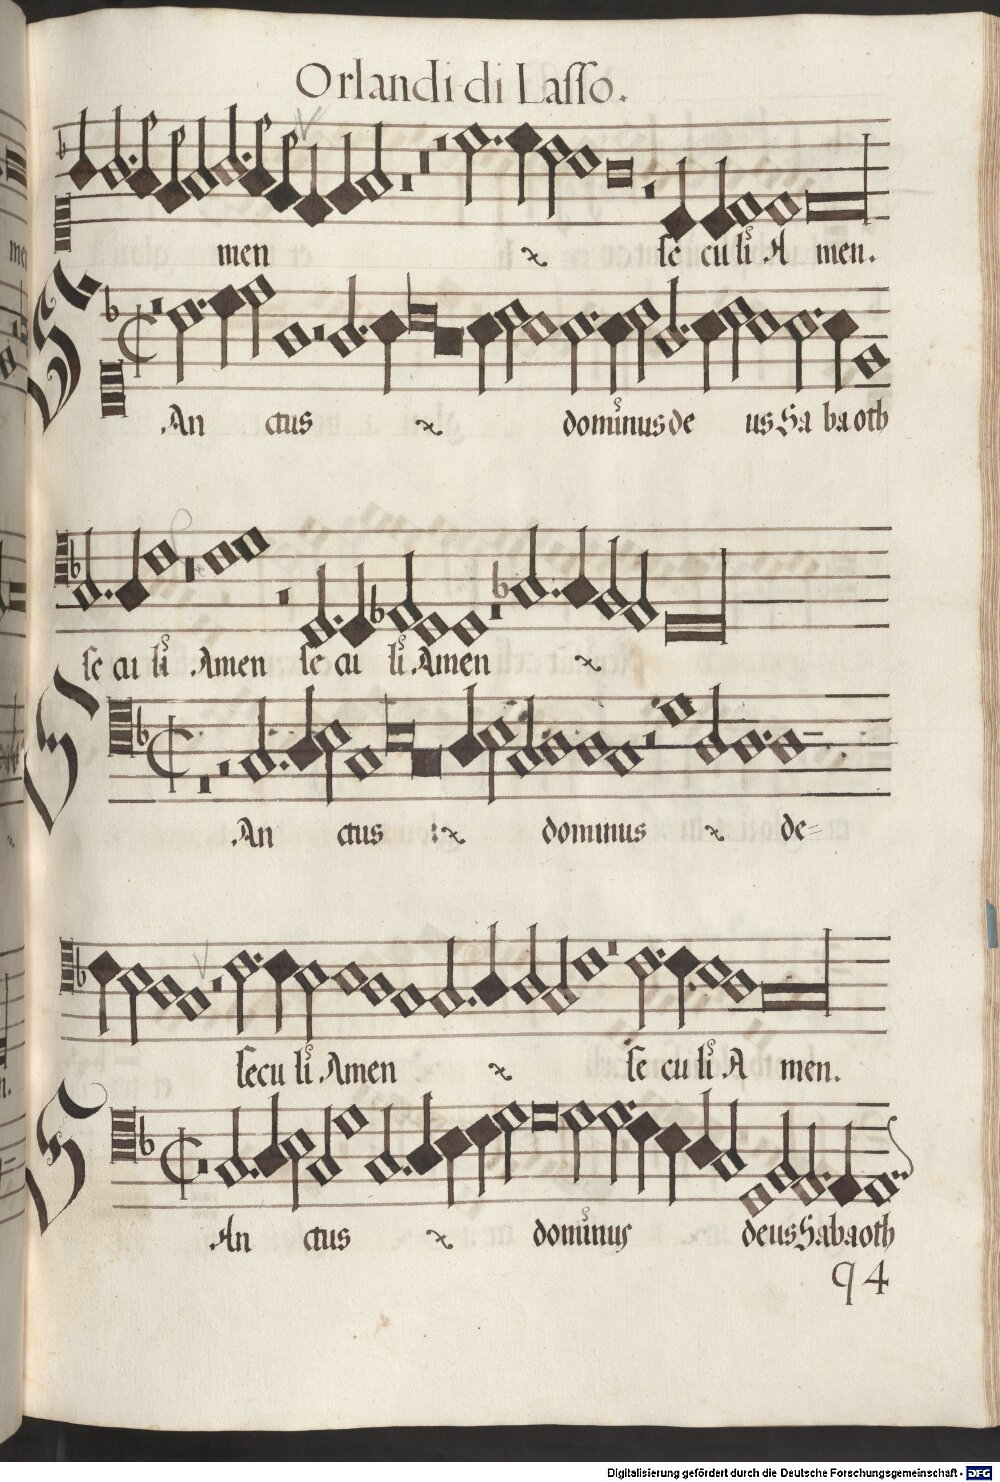 Orlandi di Lasso.
men se cu li A men.
SAn ctus dominus de us Sa ba oth
se cu li Amen se cu li Amen
SAn ctus dominus de=
se cu li Amen se cu li A men.
SAn ctus dominus deus Sabaoth
94
Digitalisierung gefördert durch die Deutsche Forschungsgemeinschaft - DFG